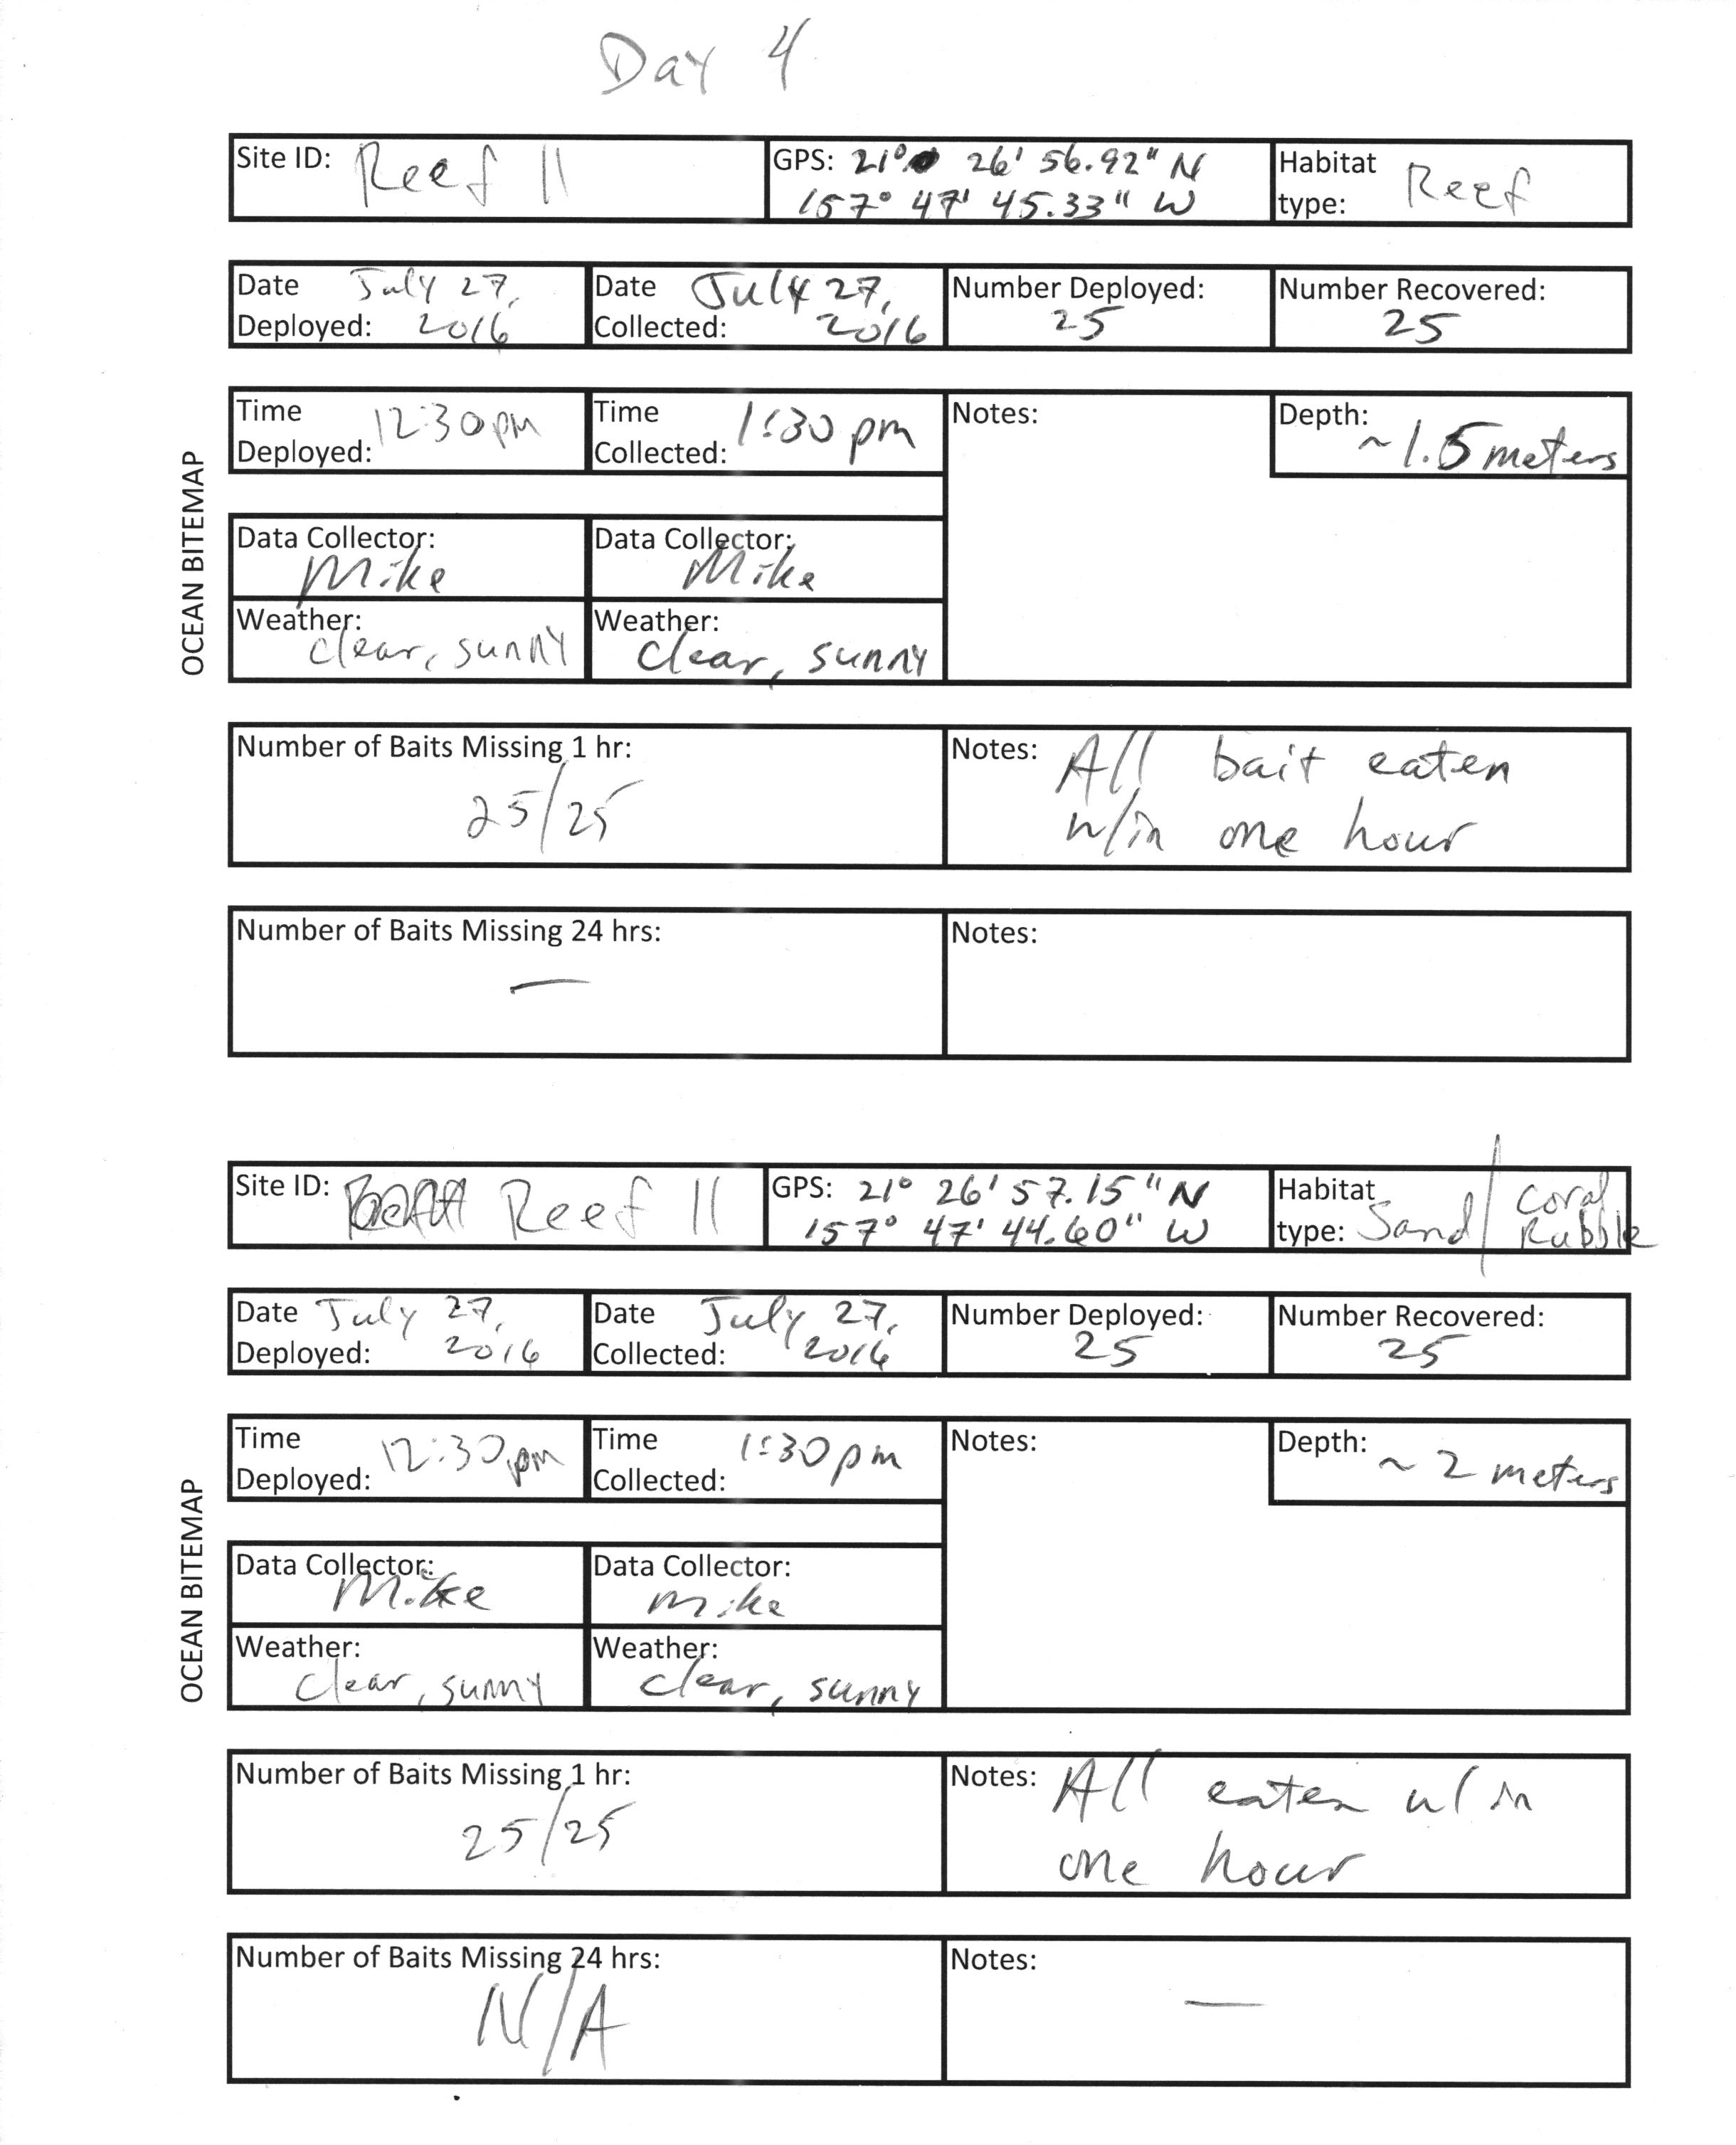 Day 4
Site ID: Reef 11
GPS: 21° 26' 56.92" N
157° 47' 45.33" W
Habitat type: Reef
Date Deployed: July 27, 2016
Date Collected: July 27, 2016
Number Deployed: 25
Number Recovered: 25
Time Deployed: 12:30pm
Time Collected: 1:30 pm
Notes:
Depth: ~1.5 meters
OCEAN BITEMAP
Data Collector: Mike
Data Collector: Mike
Weather: clear, sunny
Weather: clear, sunny
Number of Baits Missing 1 hr:
25/25
Notes: All bait eaten
w/in one hour
Number of Baits Missing 24 hrs:
—
Notes:
Site ID: Reef 11
GPS: 21° 26' 57.15" N
157° 47' 44.60" W
Habitat type: Sand/Coral Rubble
Date Deployed: July 27, 2016
Date Collected: July 27, 2016
Number Deployed: 25
Number Recovered: 25
Time Deployed: 12:30pm
Time Collected: 1:30pm
Notes:
Depth: ~ 2 meters
OCEAN BITEMAP
Data Collector: Mike
Data Collector: Mike
Weather: clear, sunny
Weather: clear, sunny
Number of Baits Missing 1 hr:
25/25
Notes: All eaten w/in
one hour
Number of Baits Missing 24 hrs:
N/A
Notes:
—